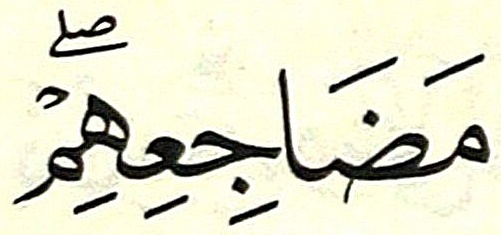 مَضَاجِعِهِمْۖ